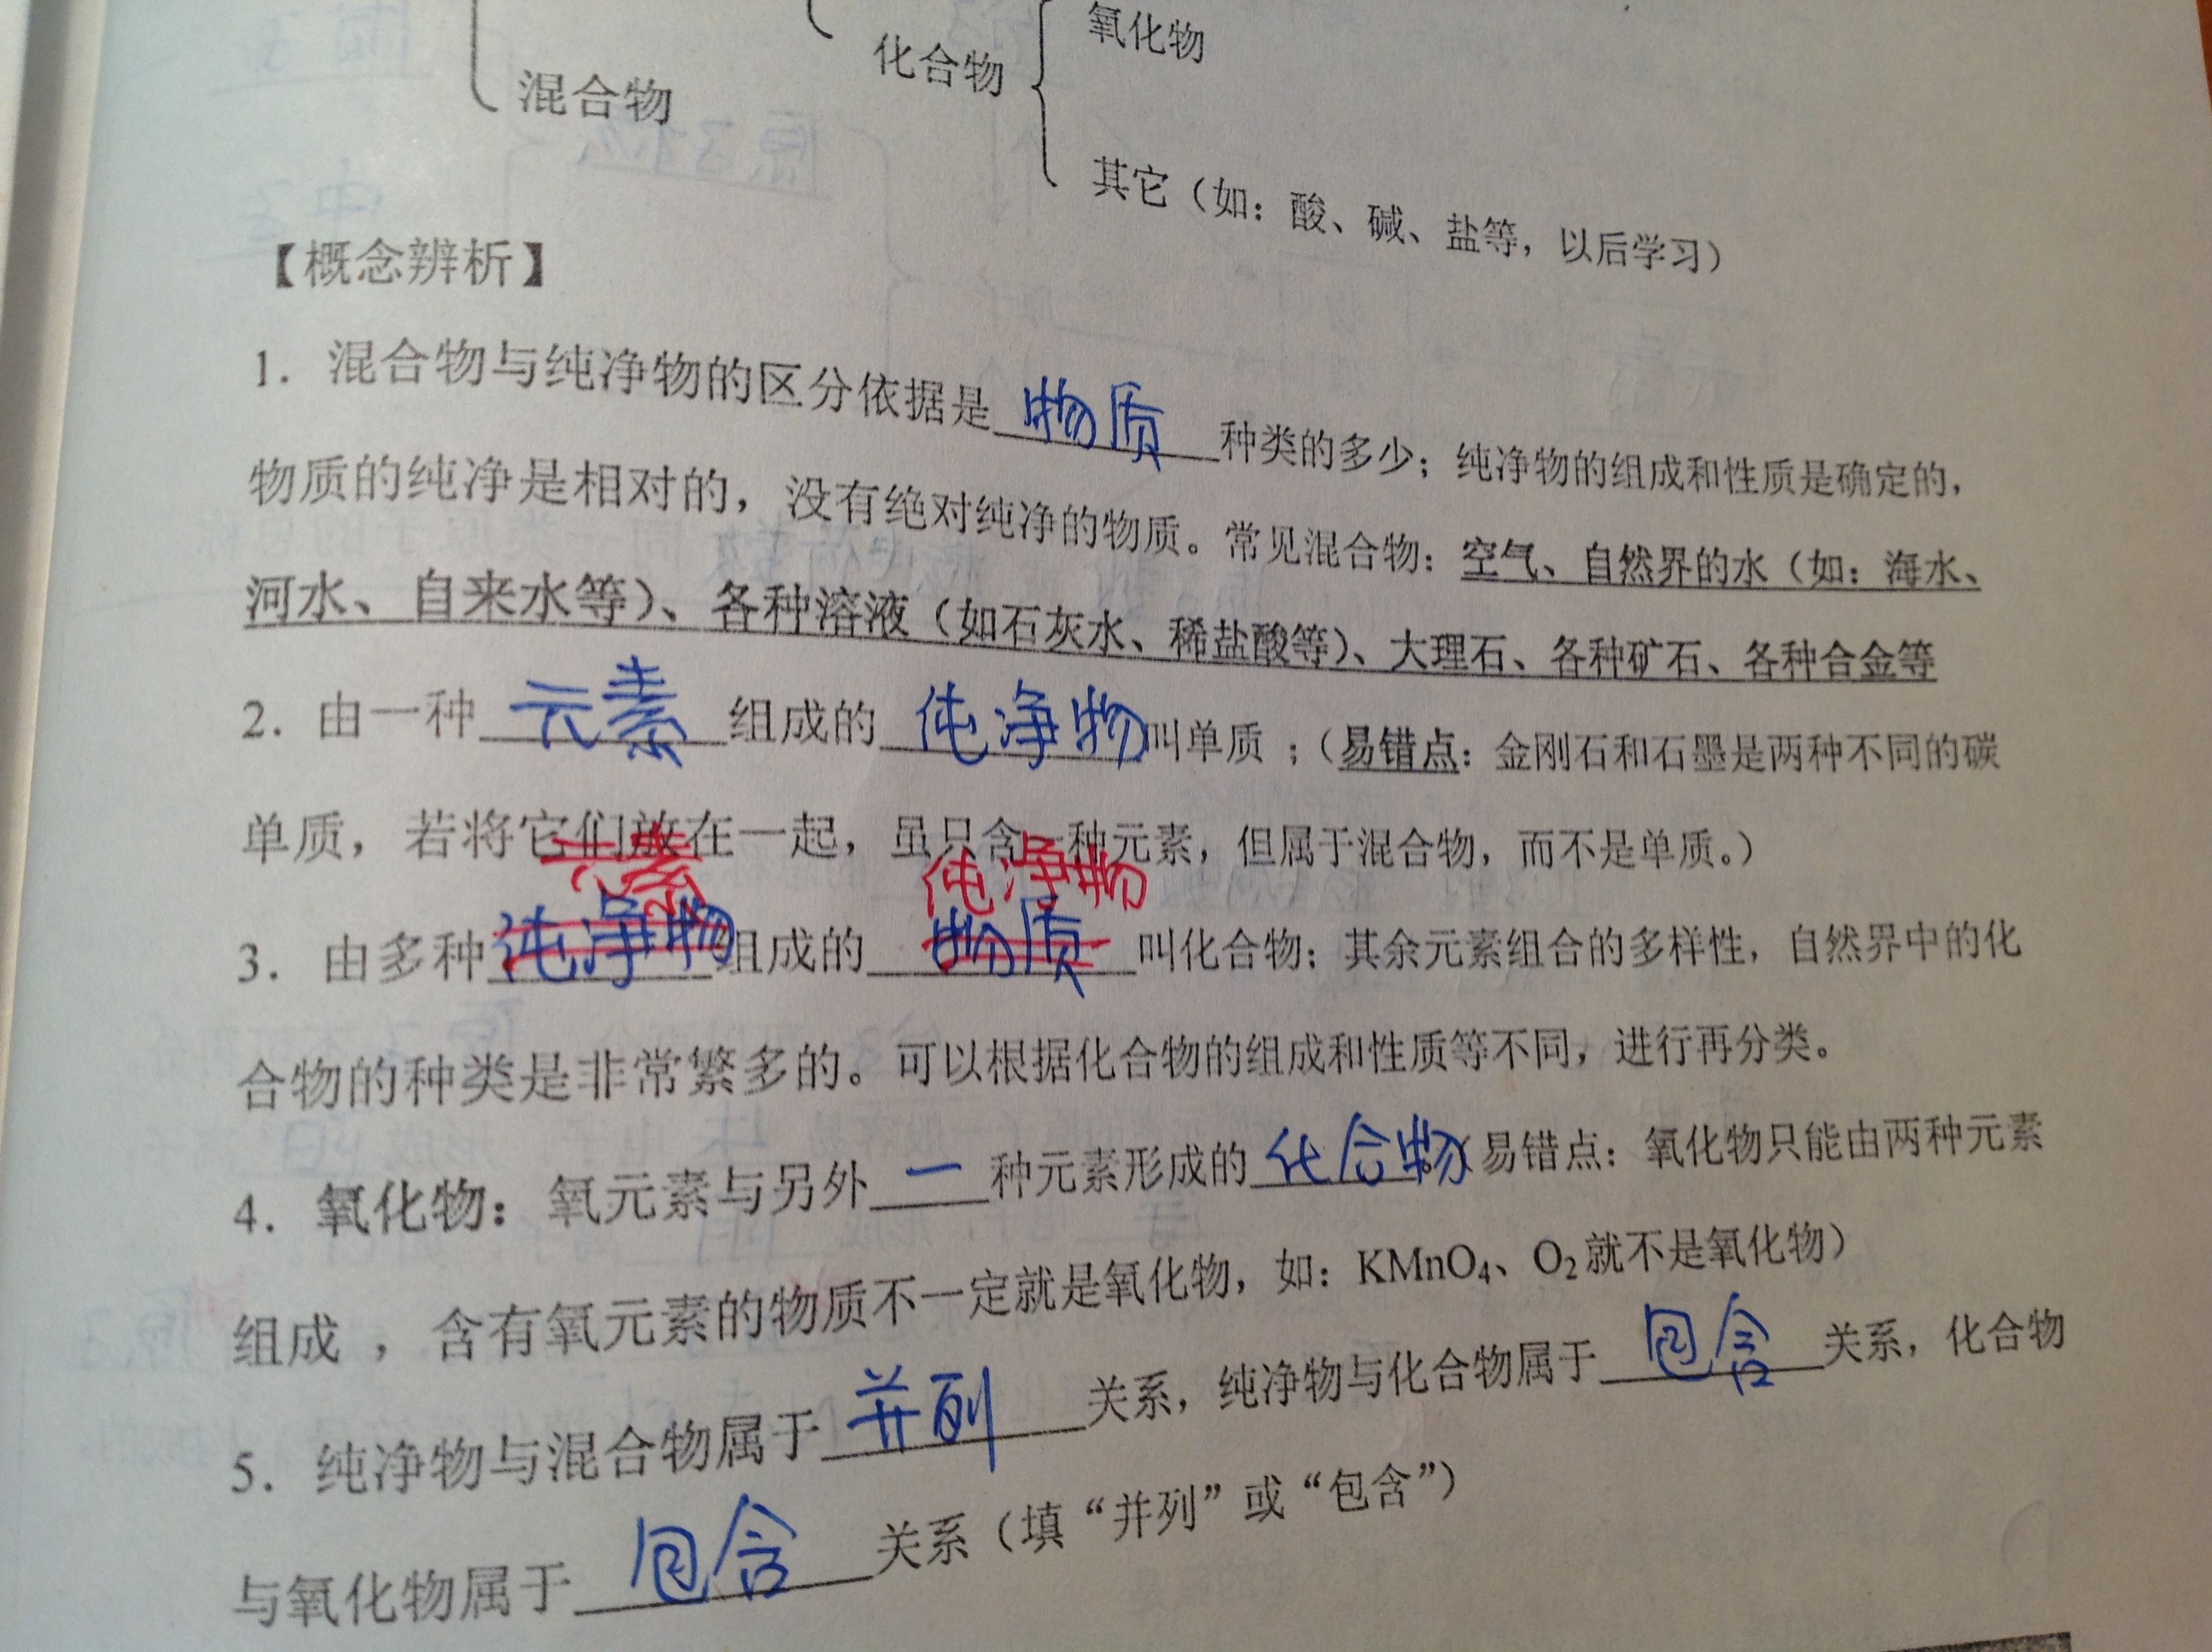 氧化物
化合物
混合物
其它（如：酸、碱、盐等，以后学习）
【概念辨析】
1．混合物与纯净物的区分依据是 物质 种类的多少；纯净物的组成和性质是确定的，
物质的纯净是相对的，没有绝对纯净的物质。常见混合物：空气、自然界的水（如：海水、
河水、自来水等）、各种溶液（如石灰水、稀盐酸等）、大理石、各种矿石、各种合金等
2．由一种 元素 组成的 纯净物 叫单质；（易错点：金刚石和石墨是两种不同的碳
单质，若将它们放在一起，虽只含一种元素，但属于混合物，而不是单质。）
元素 纯净物
3．由多种 纯净物 组成的 物质 叫化合物；其余元素组合的多样性，自然界中的化
合物的种类是非常繁多的。可以根据化合物的组成和性质等不同，进行再分类。
4．氧化物：氧元素与另外 一 种元素形成的 化合物（易错点：氧化物只能由两种元素
组成，含有氧元素的物质不一定就是氧化物，如：KMnO₄、O₂就不是氧化物）
5．纯净物与混合物属于 并列 关系，纯净物与化合物属于 包含 关系，化合物
与氧化物属于 包含 关系（填“并列”或“包含”）